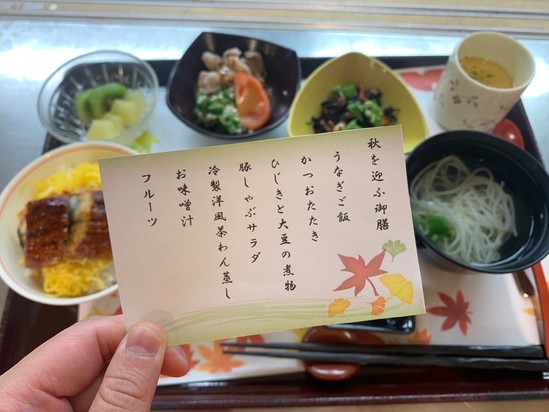 秋を迎ふ御膳
うなぎご飯
かつおたたき
ひじきと大豆の煮物
豚しゃぶサラダ
冷製洋風茶わん蒸し
お味噌汁
フルーツ